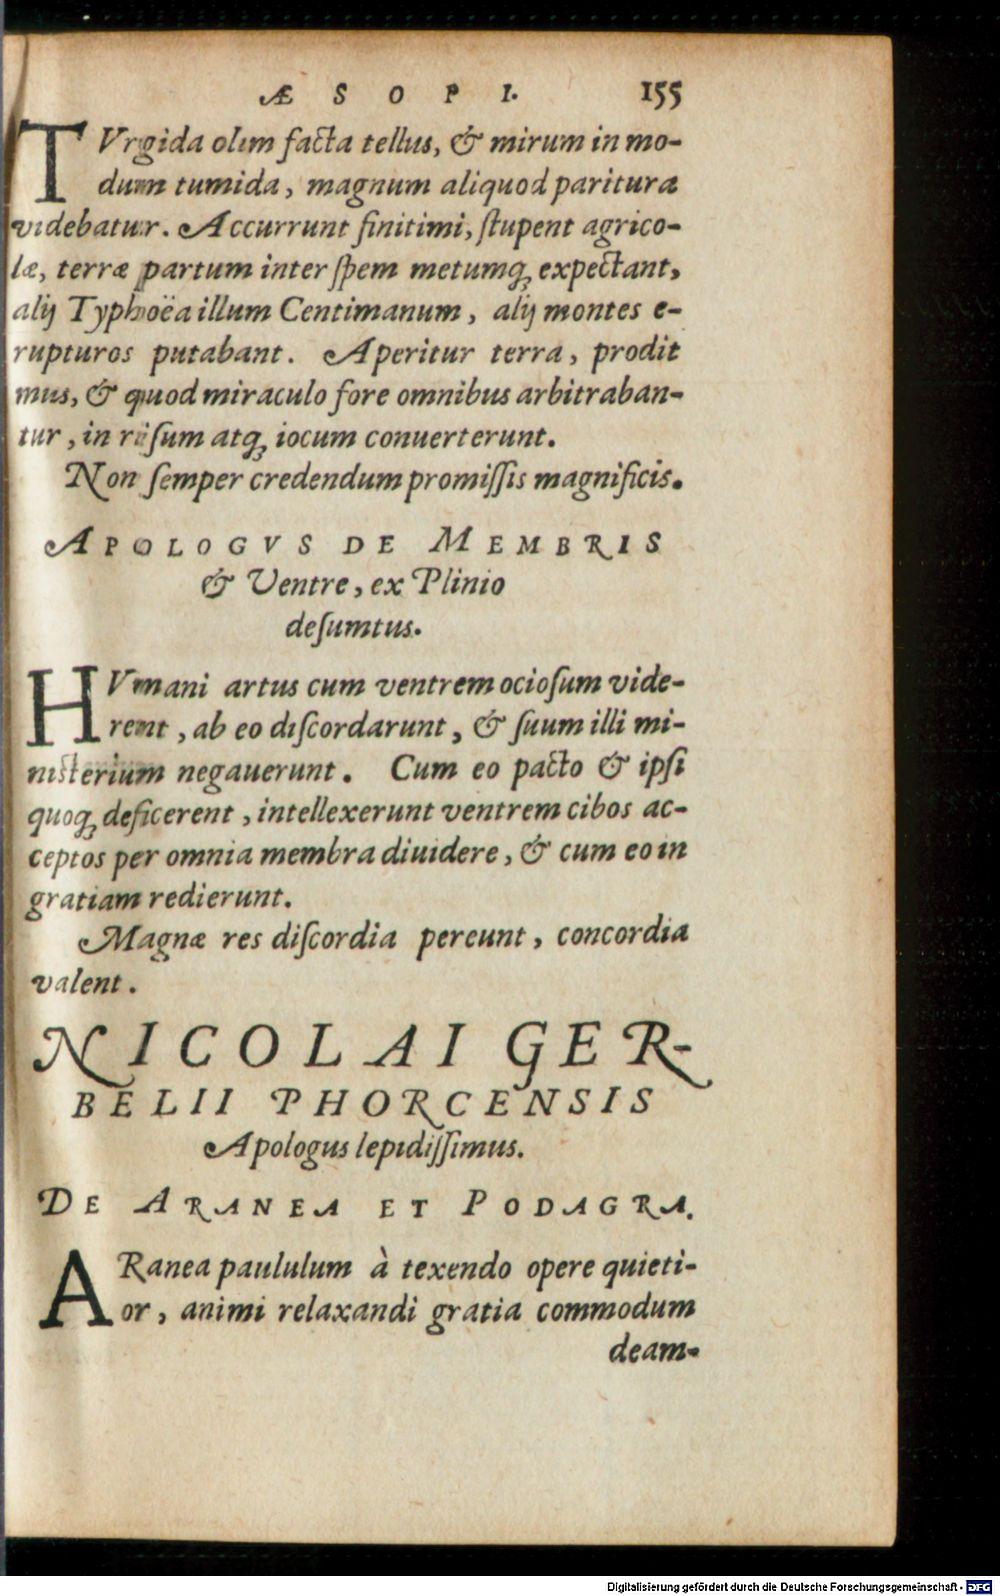 ÆSOPI. 155
TVrgida olim facta tellus, & mirum in mo-
dum tumida, magnum aliquod paritura
videbatur. Accurrunt finitimi, ſtupent agrico-
læ, terræ partum inter ſpem metumq́ꝫ expectant,
alij Typhoëa illum Centimanum, alij montes e-
rupturos putabant. Aperitur terra, prodit
mus, & quod miraculo fore omnibus arbitraban-
tur, in riſum atqꝫ iocum conuerterunt.
Non ſemper credendum promiſſis magnificis.
APOLOGVS DE MEMBRIS
& Ventre, ex Plinio
deſumtus.
HVmani artus cum ventrem ocioſum vide-
rent, ab eo diſcordarunt, & ſuum illi mi-
niſterium negauerunt. Cum eo pacto & ipſi
quoqꝫ deficerent, intellexerunt ventrem cibos ac-
ceptos per omnia membra diuidere, & cum eo in
gratiam redierunt.
Magnæ res diſcordia pereunt, concordia
valent.
NICOLAI GER-
BELII PHORCENSIS
Apologus lepidiſſimus.
DE ARANEA ET PODAGRA.
ARanea paululum à texendo opere quieti-
or, animi relaxandi gratia commodum
deam-
Digitalisierung gefördert durch die Deutsche Forschungsgemeinschaft - DFG